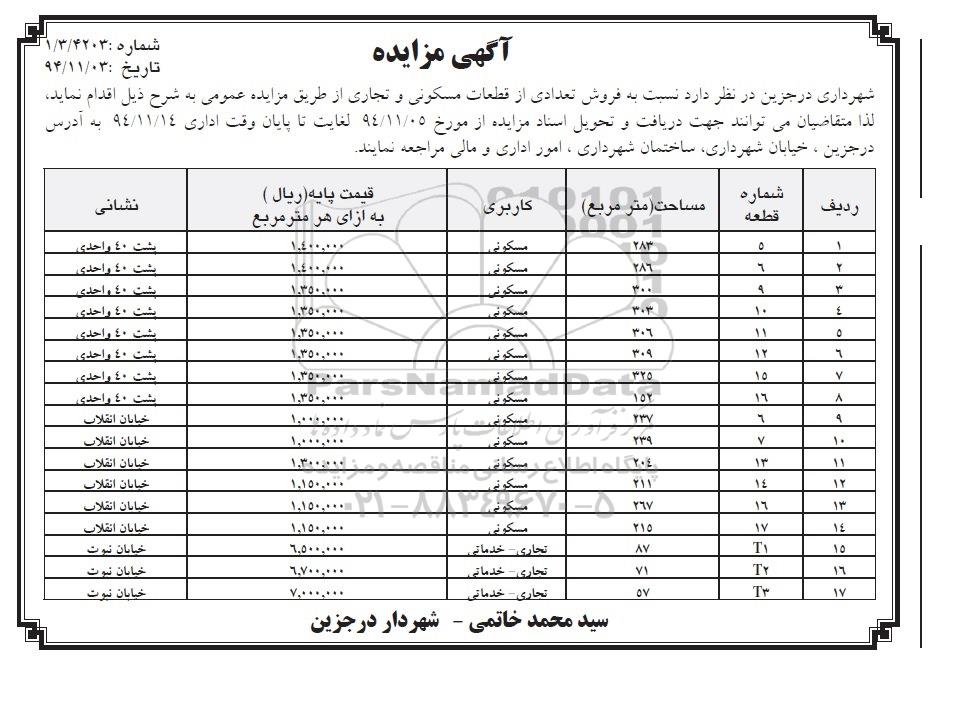 آگهی مزایده
شماره :۱/۳/۴۲۰۳
تاریخ :۹۴/۱۱/۰۳
شهرداری درجزین در نظر دارد نسبت به فروش تعدادی از قطعات مسکونی و تجاری از طریق مزایده عمومی به شرح ذیل اقدام نماید،
لذا متقاضیان می توانند جهت دریافت و تحویل اسناد مزایده از مورخ ۹۴/۱۱/۰۵ لغایت تا پایان وقت اداری ۹۴/۱۱/۱۴ به آدرس
درجزین ، خیابان شهرداری، ساختمان شهرداری ، امور اداری و مالی مراجعه نمایند.
ردیف شماره قطعه مساحت(متر مربع) کاربری قیمت پایه(ریال ) به ازای هر مترمربع نشانی
۱ ۵ ۲۸۳ مسکونی ۱,۴۰۰,۰۰۰ پشت ۴۰ واحدی
۲ ۶ ۲۸۶ مسکونی ۱,۴۰۰,۰۰۰ پشت ۴۰ واحدی
۳ ۹ ۳۰۰ مسکونی ۱,۳۵۰,۰۰۰ پشت ۴۰ واحدی
۴ ۱۰ ۳۰۳ مسکونی ۱,۳۵۰,۰۰۰ پشت ۴۰ واحدی
۵ ۱۱ ۳۰۶ مسکونی ۱,۳۵۰,۰۰۰ پشت ۴۰ واحدی
۶ ۱۲ ۳۰۹ مسکونی ۱,۳۵۰,۰۰۰ پشت ۴۰ واحدی
۷ ۱۵ ۳۲۵ مسکونی ۱,۳۵۰,۰۰۰ پشت ۴۰ واحدی
۸ ۱۶ ۱۵۲ مسکونی ۱,۳۵۰,۰۰۰ پشت ۴۰ واحدی
۹ ۶ ۲۳۷ مسکونی ۱,۰۰۰,۰۰۰ خیابان انقلاب
۱۰ ۷ ۲۳۹ مسکونی ۱,۰۰۰,۰۰۰ خیابان انقلاب
۱۱ ۱۳ ۲۰۴ مسکونی ۱,۳۰۰,۰۰۰ خیابان انقلاب
۱۲ ۱۴ ۲۱۱ مسکونی ۱,۱۵۰,۰۰۰ خیابان انقلاب
۱۳ ۱۶ ۲۶۷ مسکونی ۱,۱۵۰,۰۰۰ خیابان انقلاب
۱۴ ۱۷ ۲۱۵ مسکونی ۱,۱۵۰,۰۰۰ خیابان انقلاب
۱۵ T۱ ۸۷ تجاری- خدماتی ۶,۵۰۰,۰۰۰ خیابان نبوت
۱۶ T۲ ۷۱ تجاری- خدماتی ۶,۷۰۰,۰۰۰ خیابان نبوت
۱۷ T۳ ۵۷ تجاری- خدماتی ۷,۰۰۰,۰۰۰ خیابان نبوت
سید محمد خاتمی - شهردار درجزین
ParsNamadData
مرکز فرآوری اطلاعات پارس نماد داده ها
پایگاه اطلاع رسانی مناقصه و مزایده
۰۲۱-۸۸۳۴۹۶۷۰-۵